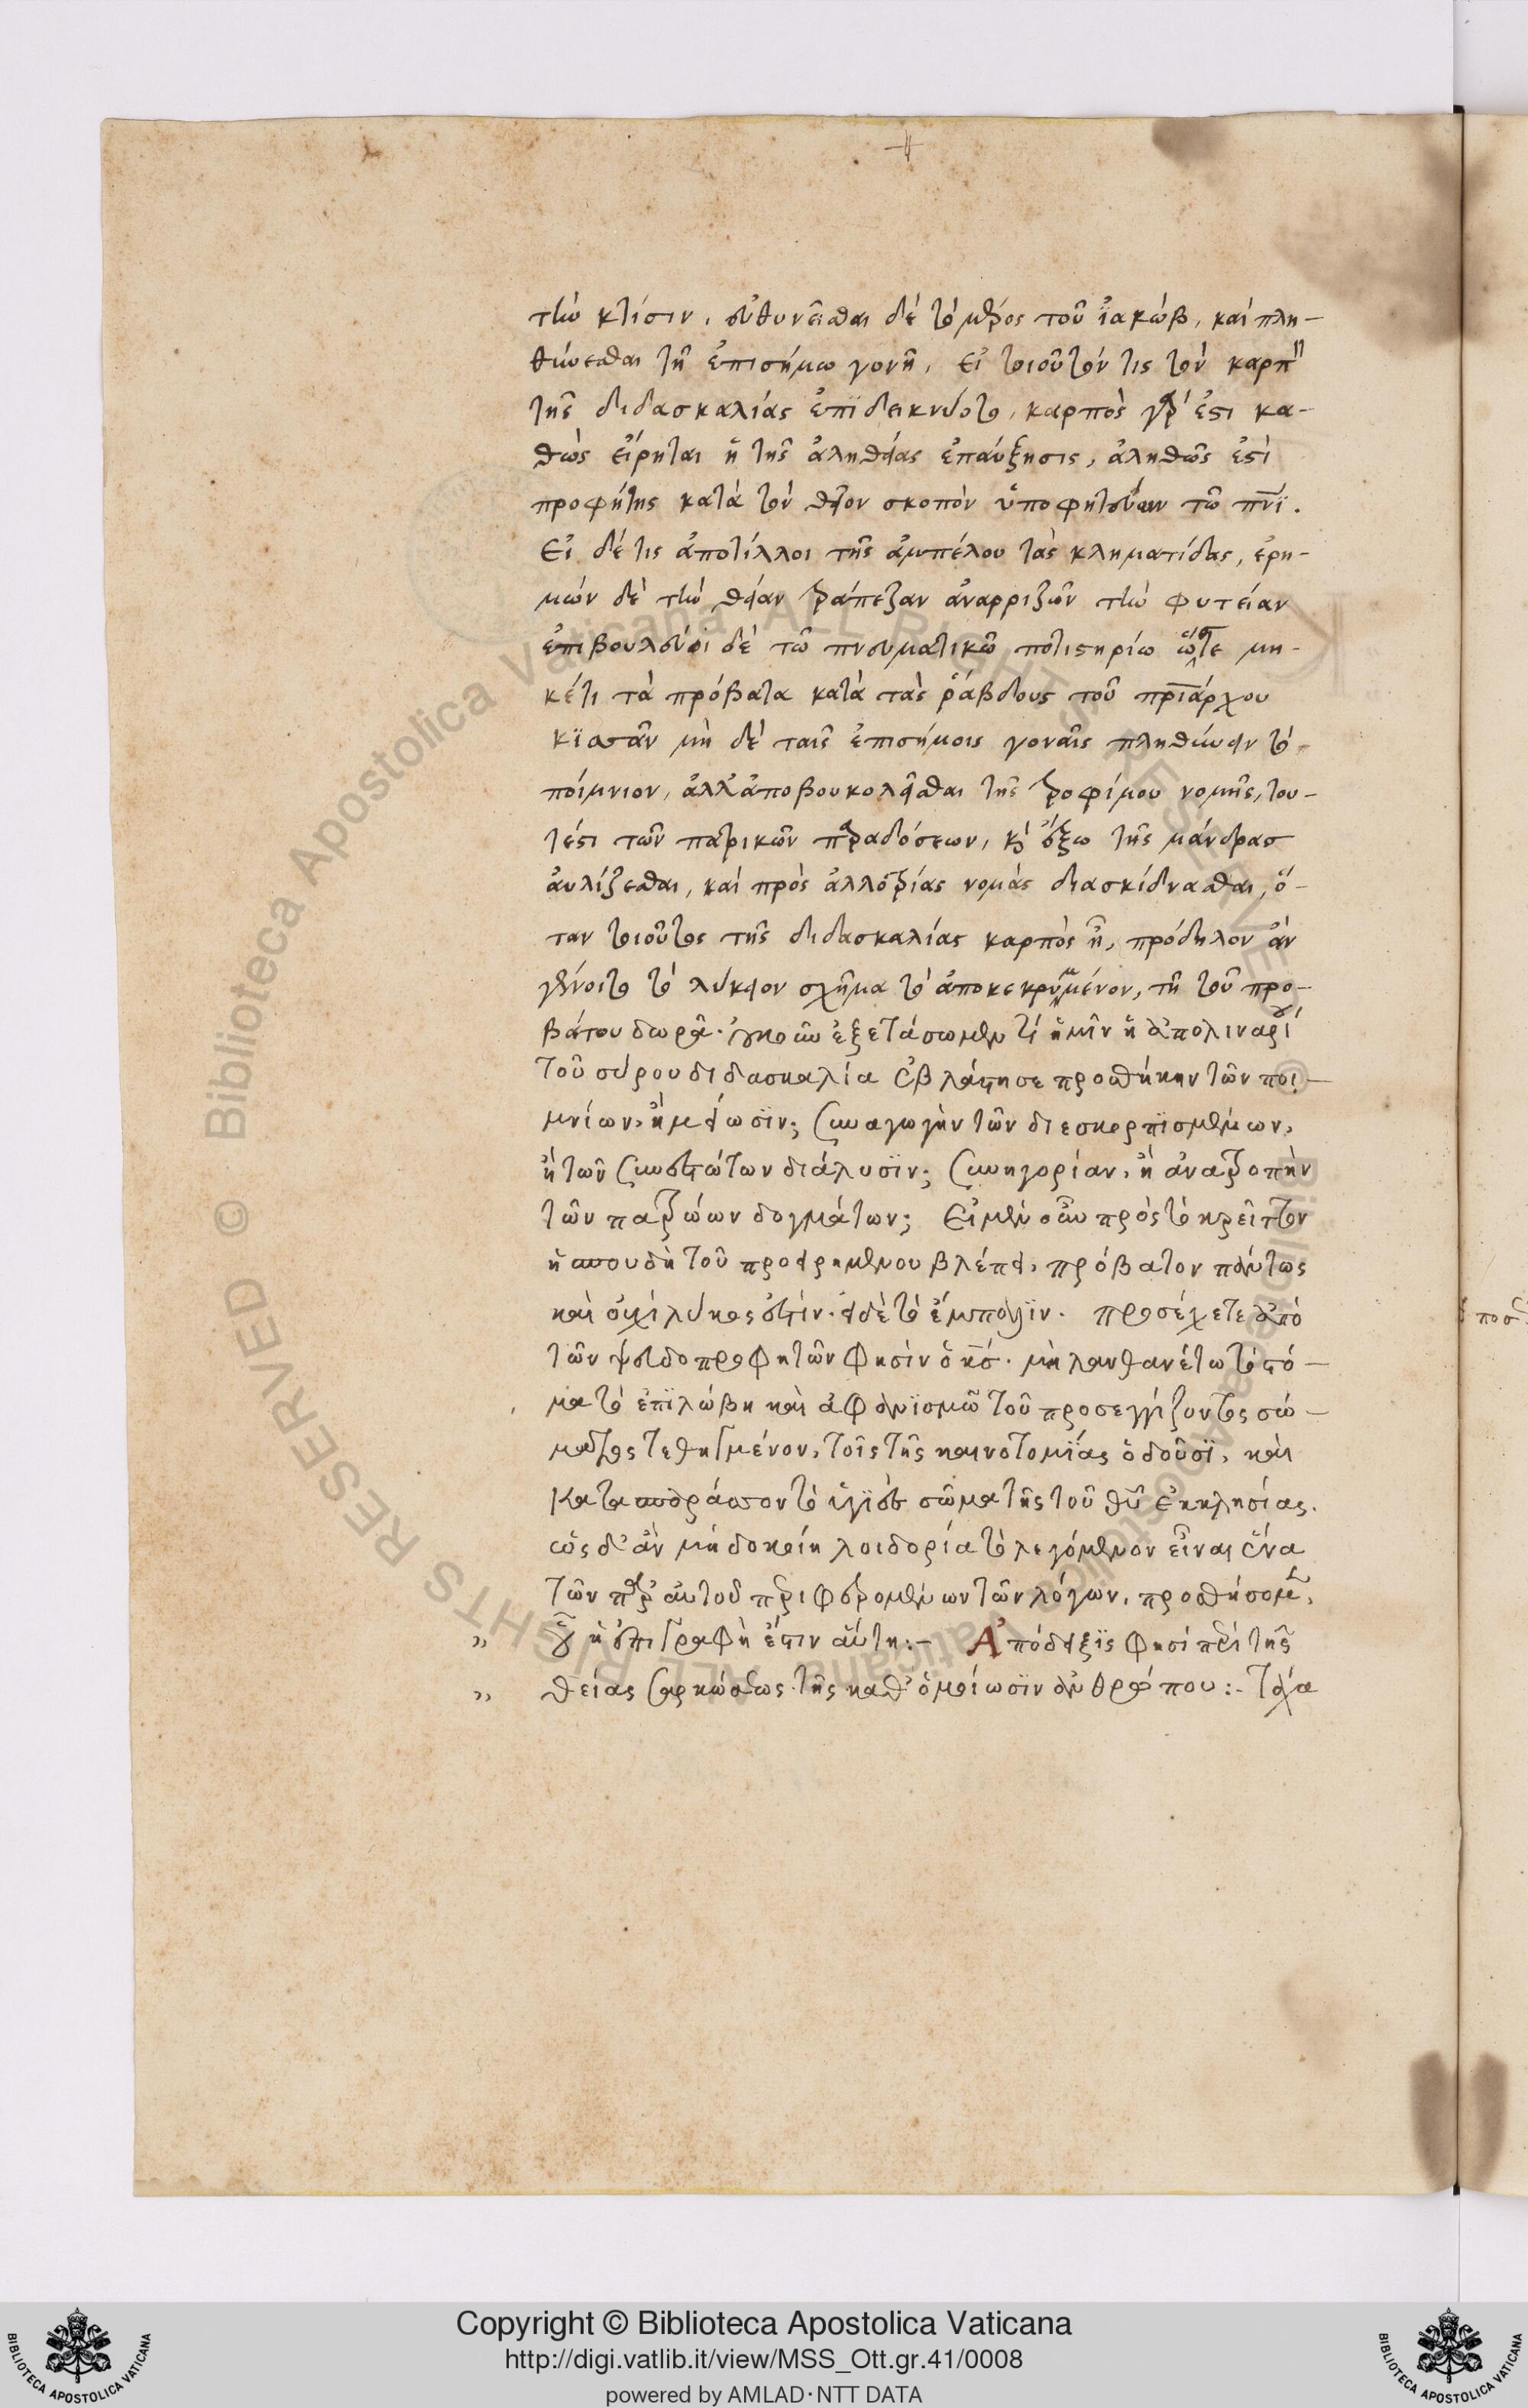 τὴν κτίσιν, εὐθυνεῖσθαι δὲ τὸ μέρος τοῦ ἰακώβ, καὶ πλη-
θύνεσθαι τῇ ἐπισήμω γονῇ, εἰ τοιοῦτόν τις τὸν καρπ
τῆς διδασκαλίας ἐπϊδεικνύοιτο, καρπὸς γάρ ἐστι κα-
θὼς εἴρηται ἡ τῆς ἀληθείας ἐπαύξησις, ἀληθῶς ἐστὶ
προφήτης κατὰ τὸν θεῖον σκοπὸν ὑποφητεύων τῶ πνϊ.
Εἰ δέ τις ἀποτίλλοι τῆς ἀμπέλου τὰς κληματίδας, ἐρη-
μῶν δὲ τὴν θείαν τράπεζαν ἀναρριζῶν τὴν φυτείαν
ἐπιβουλεύοι δὲ τῶ πνευματικῶ ποτιστηρίω ὥστε μη-
κέτι τὰ πρόβατα κατὰ τὰς ῥάβδους τοῦ πριάρχου
κϊσσᾶν μὴ δὲ ταῖς ἐπισήμοις γοναῖς πληθύνειν τὸ
ποίμνιον, ἀλλ' ἀποβουκολεῖσθαι τῆς τροφίμου νομῆς, του-
τέστι τῶν πατρικῶν παραδόσεων, κ ἔξω τῆς μάνδρασ
ἀυλίζεσθαι, καὶ πρὸς ἀλλοτρίας νομὰς διασκίδνασθαι, ὅ-
ταν τοιοῦτος τῆς διδασκαλίας καρπὸς ἦ, πρόδηλον ἂν
γένοιτο τὸ λύκειον σχῆμα τὸ ἀποκεκρυμμένον, τῇ τοῦ προ-
βάτου δωρᾶ. οὐκοῦν ἐξετάσωμεν τί ἡμῖν ἡ ἀπολιναρί
τοῦ σύρου διδασκαλία ἐβλάστησε προσθήκην τῶν ποι-
μνίων, ἢ μείωσϊν; συναγωγὴν τῶν διεσκορπϊσμένων,
ἢ τῶν συνεστώτων διάλυσϊν; συνηγορίαν, ἢ ἀνατροπὴν
τῶν πατρώων δογμάτων; Εἰ μὲν οὖν πρὸς τὸ κρεῖττον
ἡ σπουδὴ τοῦ προειρημένου βλέπει, πρόβατον πάντως
καὶ οὐχὶ λύκος ἐστίν. εἰ δὲ τὸ ἔμπαλϊν. προσέχετε ἀπὸ
τῶν ψευδοπροφητῶν φησὶν ὁ κσ. μὴ λανθανέτω τὸ στό-
μα τὸ ἐπϊλώβη καὶ ἀφανϊσμῶ τοῦ προσεγγίζοντος σώ-
ματος τεθηγμένον, τοῖς τῆς καινοτομϊας ὀδοῦσϊ, καὶ
κατασπαράσσον τὸ ὑγϊὲς σῶμα τῆς τοῦ θυ ἐκκλησίας.
ὡς δ' ἂν μὴ δοκοίη λοιδορία τὸ λεγόμενον εἶναι ἕνα
τῶν παρ' ἀυτοῦ περιφερομένων τῶν λόγων, προσθήσομ,
,, οὗ ἡ ἐπιγραφὴ ἐστιν ἅυτη:- Ἀπόδειξϊς φησὶ περὶ τῆς
,, θείας σαρκώσεως τῆς καθ' ὁμοίωσϊν ἀνθρώπου:- τάχα